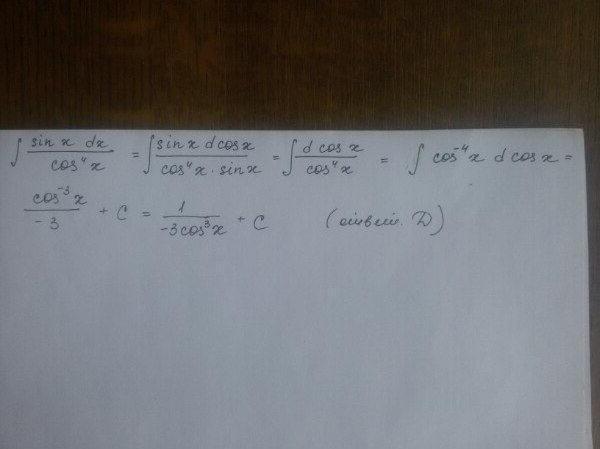 ∫ sin x dx / cos⁴x = ∫ sin x d cos x / cos⁴x · sin x = ∫ d cos x / cos⁴x = ∫ cos⁻⁴x d cos x =
cos⁻³x / -3 + C = 1 / -3cos³x + C (ответ. D)